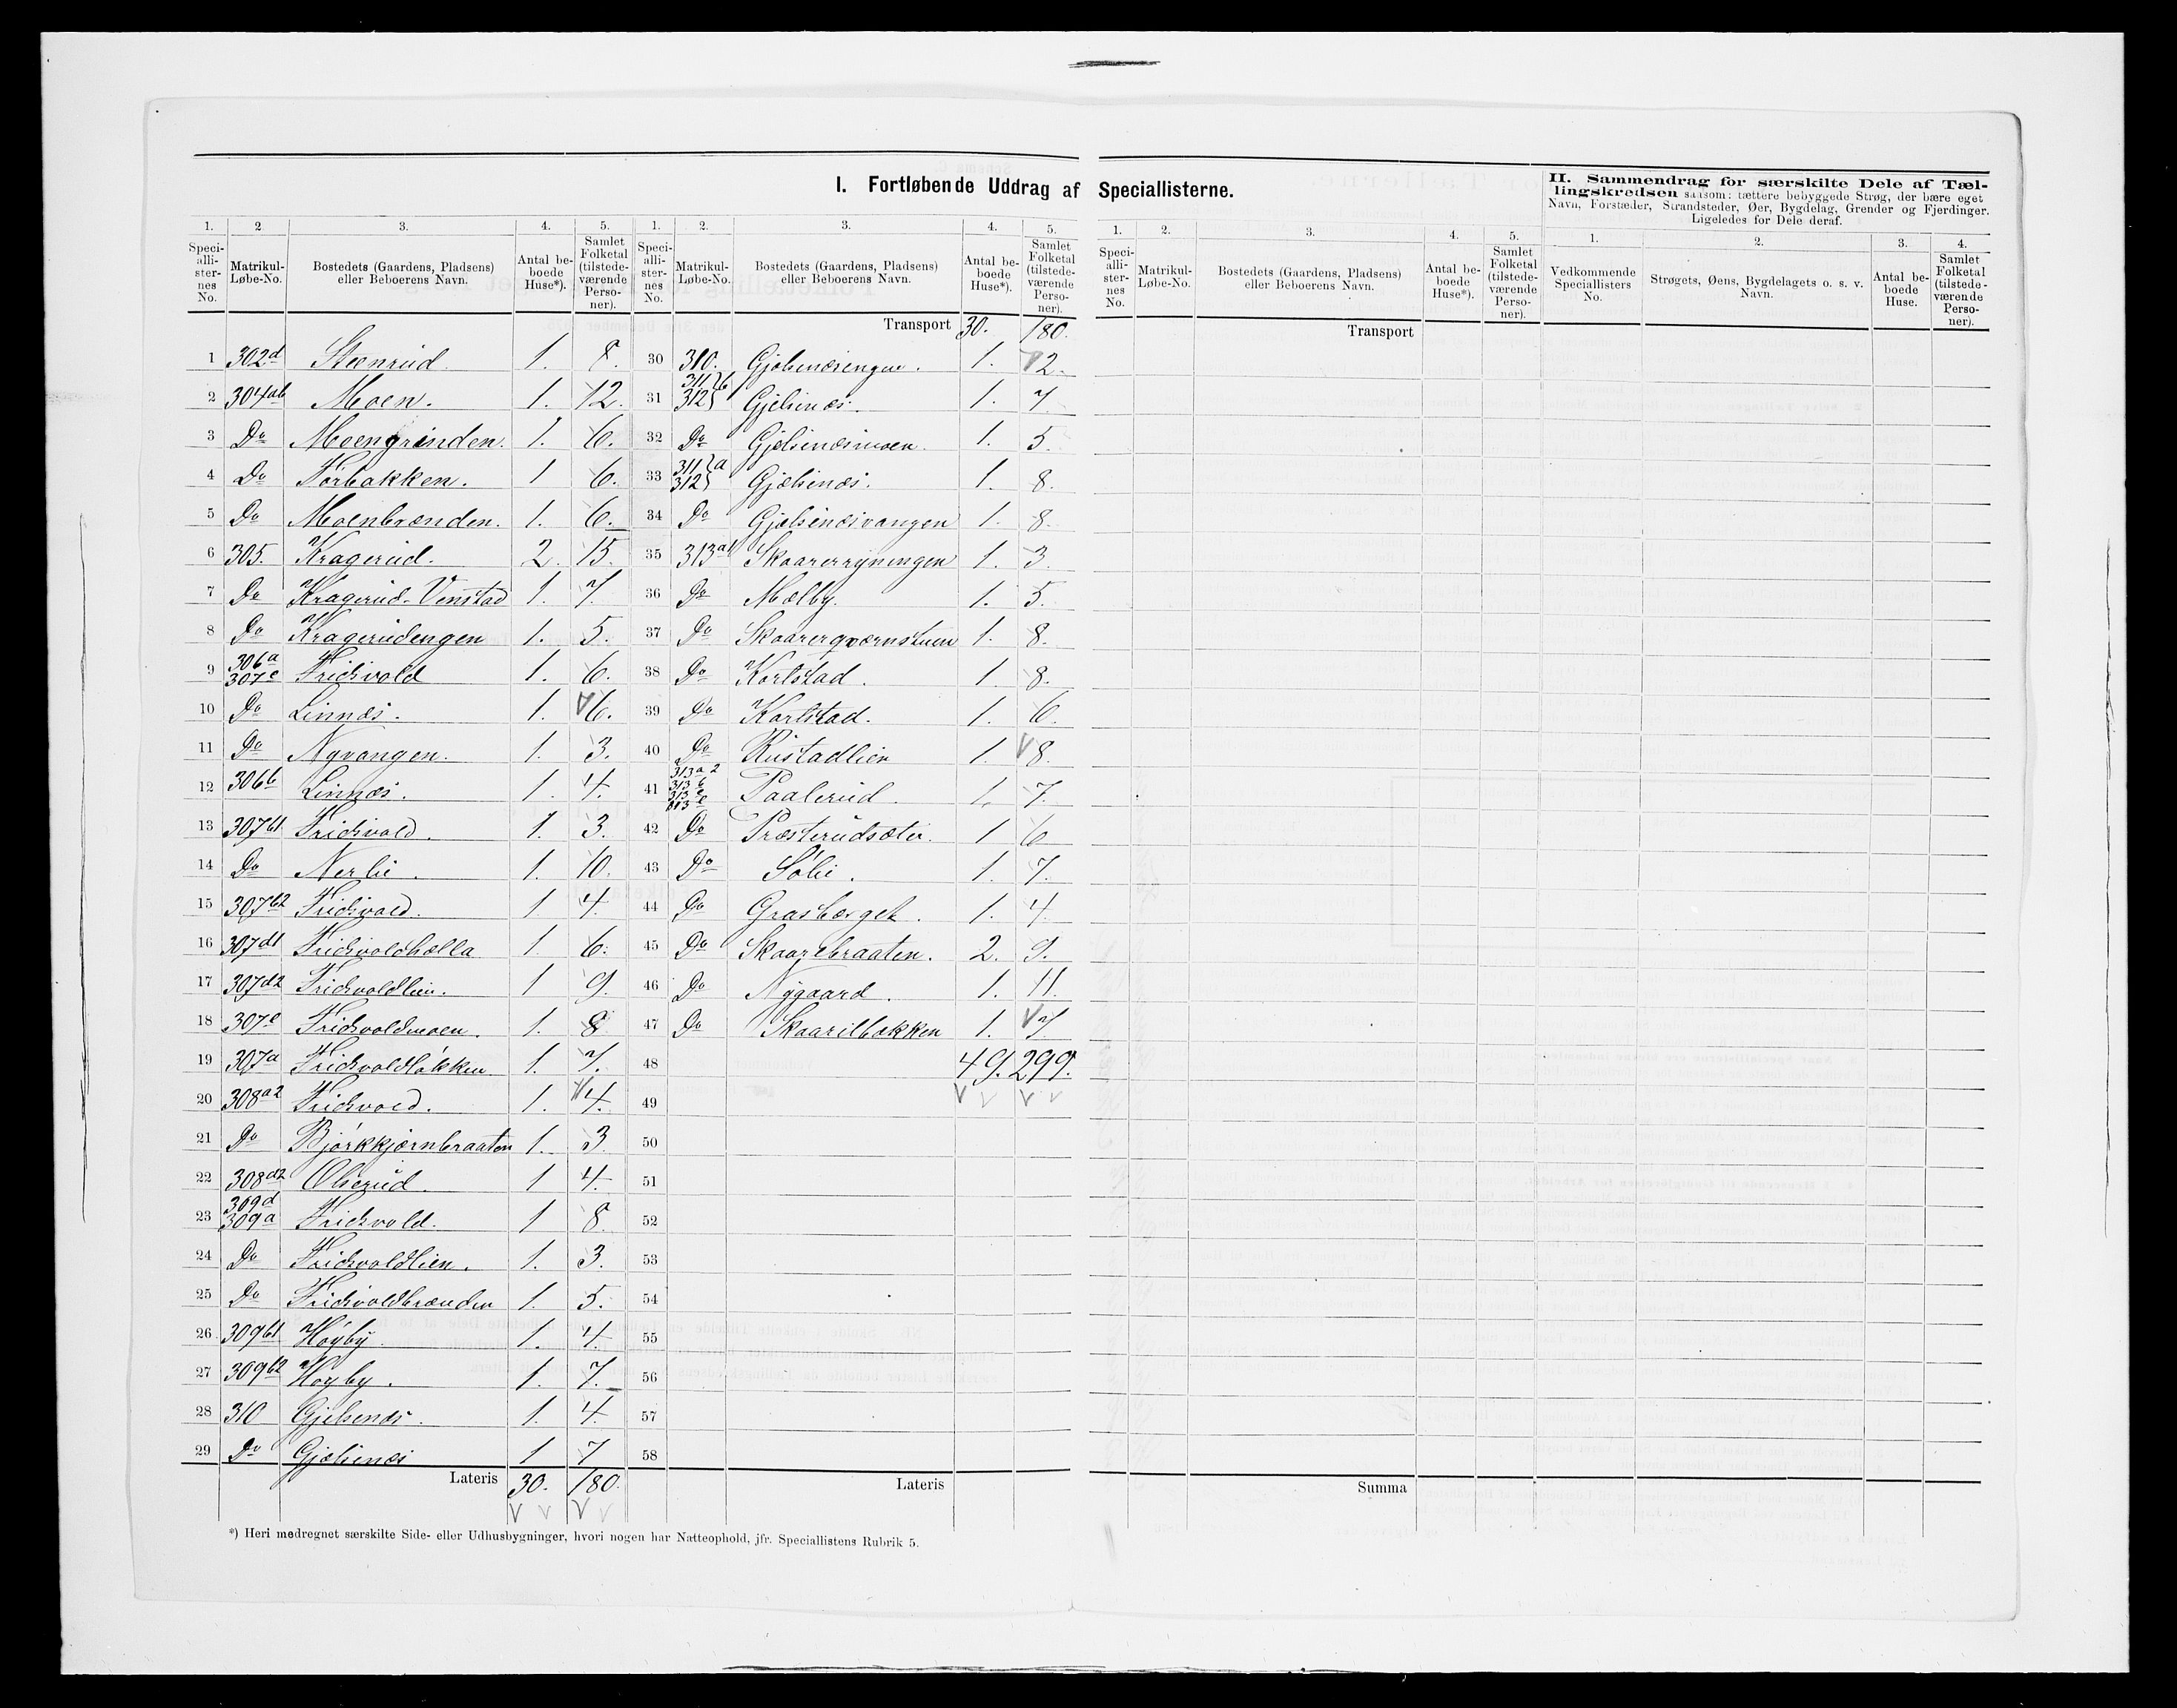 I. Fortløbende Uddrag af Speciallisterne.
II. Sammendrag for særskilte Dele af Tæl-
lingskredsen saasom: tættere bebyggede Strøg, der bære eget
Navn, Forstæder, Strandsteder, Øer, Bygdelag, Grender og Fjerdinger.
Ligeledes for Dele deraf.
1. 2 3. 4. 5. 1. 2. 3. 4. 5. 1. 2. 3. 4. 5. 1. 2. 3. 4.
Speci-alli-ster-nes No. Matrikul-Løbe-No. Bostedets (Gaardens, Pladsens) eller Beboerens Navn. Antal be-boede Huse*). Samlet Folketal (tilstede-værende Perso-ner).
Speci-alli-ster-nes No. Matrikul-Løbe-No. Bostedets (Gaardens, Pladsens) eller Beboerens Navn. Antal be-boede Huse*). Samlet Folketal (tilstede-værende Perso-ner).
Speci-alli-ster-nes No. Matrikul-Løbe-No. Bostedets (Gaardens, Pladsens) eller Beboerens Navn. Antal be-boede Huse*). Samlet Folketal (tilstede-værende Perso-ner).
Vedkommende Speciallisters No. Strøgets, Øens, Bygdelagets o. s. v. Navn. Antal be-boede Huse. Samlet Folketal (tilstede-værende Perso-ner).
1 302d Steenrud. 1. 8.
2 304ab Moen. 1. 12.
3 Do Moengrinden. 1. 6.
4 Do Førbakken. 1 6.
5 Do Moenbrænden. 1. 6.
6 305. Kragerud. 2. 15.
7 Do Kragerud-Venstad 1. 7.
8 Do Kragerudengen 1. 5.
9 306a 307c Fridsvold 1. 6.
10 Do Linnæs. 1. 6.
11 Do Nyvangen. 1. 3.
12 306b Linnæs. 1. 4.
13 307b1 Fridsvold. 1. 3.
14 Do Nerlie. 1. 10.
15 307b2 Fridsvold. 1 4.
16 307d1 Fridsvoldhælla 1. 6.
17 307d2 Fridsvoldlien. 1 9.
18 307e Fridsvoldmoen. 1. 8
19 307a Fridsvoldløkken 1. 7.
20 308a2 Fridsvold. 1. 4.
21 Do Bjørkkjærnbraaten 1. 3
22 308d2 Olserud. 1 4.
23 309d 309a Fridsvold. 1 8.
24 Do Fridsvoldlien. 1. 3.
25 Do Fridsvoldbrænden 1. 5.
26 309b1 Høyby. 1. 4.
27 309b2 Høyby. 1. 7.
28 310 Gjelsenæs. 1. 4.
29 Do Gjælsenæs 1 7
Lateris 30. 180.
Transport 30. 180.
30 310. Gjølsenæsengen. 1. 2.
31 311 312 b Gjelsenæs. 1. 7.
32 Do Gjølsenæsmoen. 1. 5.
33 311 312 a Gjælsenæs. 1. 8.
34 Do Gjælsenæsvangen 1. 8.
35 313a1 Skaarerrygningen 1. 3.
36 Do Mælby. 1. 5.
37 Do Skaarerqværnstuen 1. 8.
38 Do Karlstad. 1. 8.
39 Do Karlstad. 1. 6.
40 Do Rustadlien 1. 8.
41 313a2 313b 313c 313e Paalerud. 1. 7.
42 Do Præsterudsæter. 1 6
43 Do Sølie. 1. 7.
44 Do Grasberget. 1. 4
45 Do Skaarebraaten. 2. 9.
46 Do Nygaard. 1. 11.
47 Do Skaarilbakken 1. 7
48 49. 299.
49
50
51
52
53
54
55
56
57
58
Lateris
Transport
Summa
*) Heri medregnet særskilte Side- eller Udhusbygninger, hvori nogen har Natteophold, jfr. Speciallistens Rubrik 5.